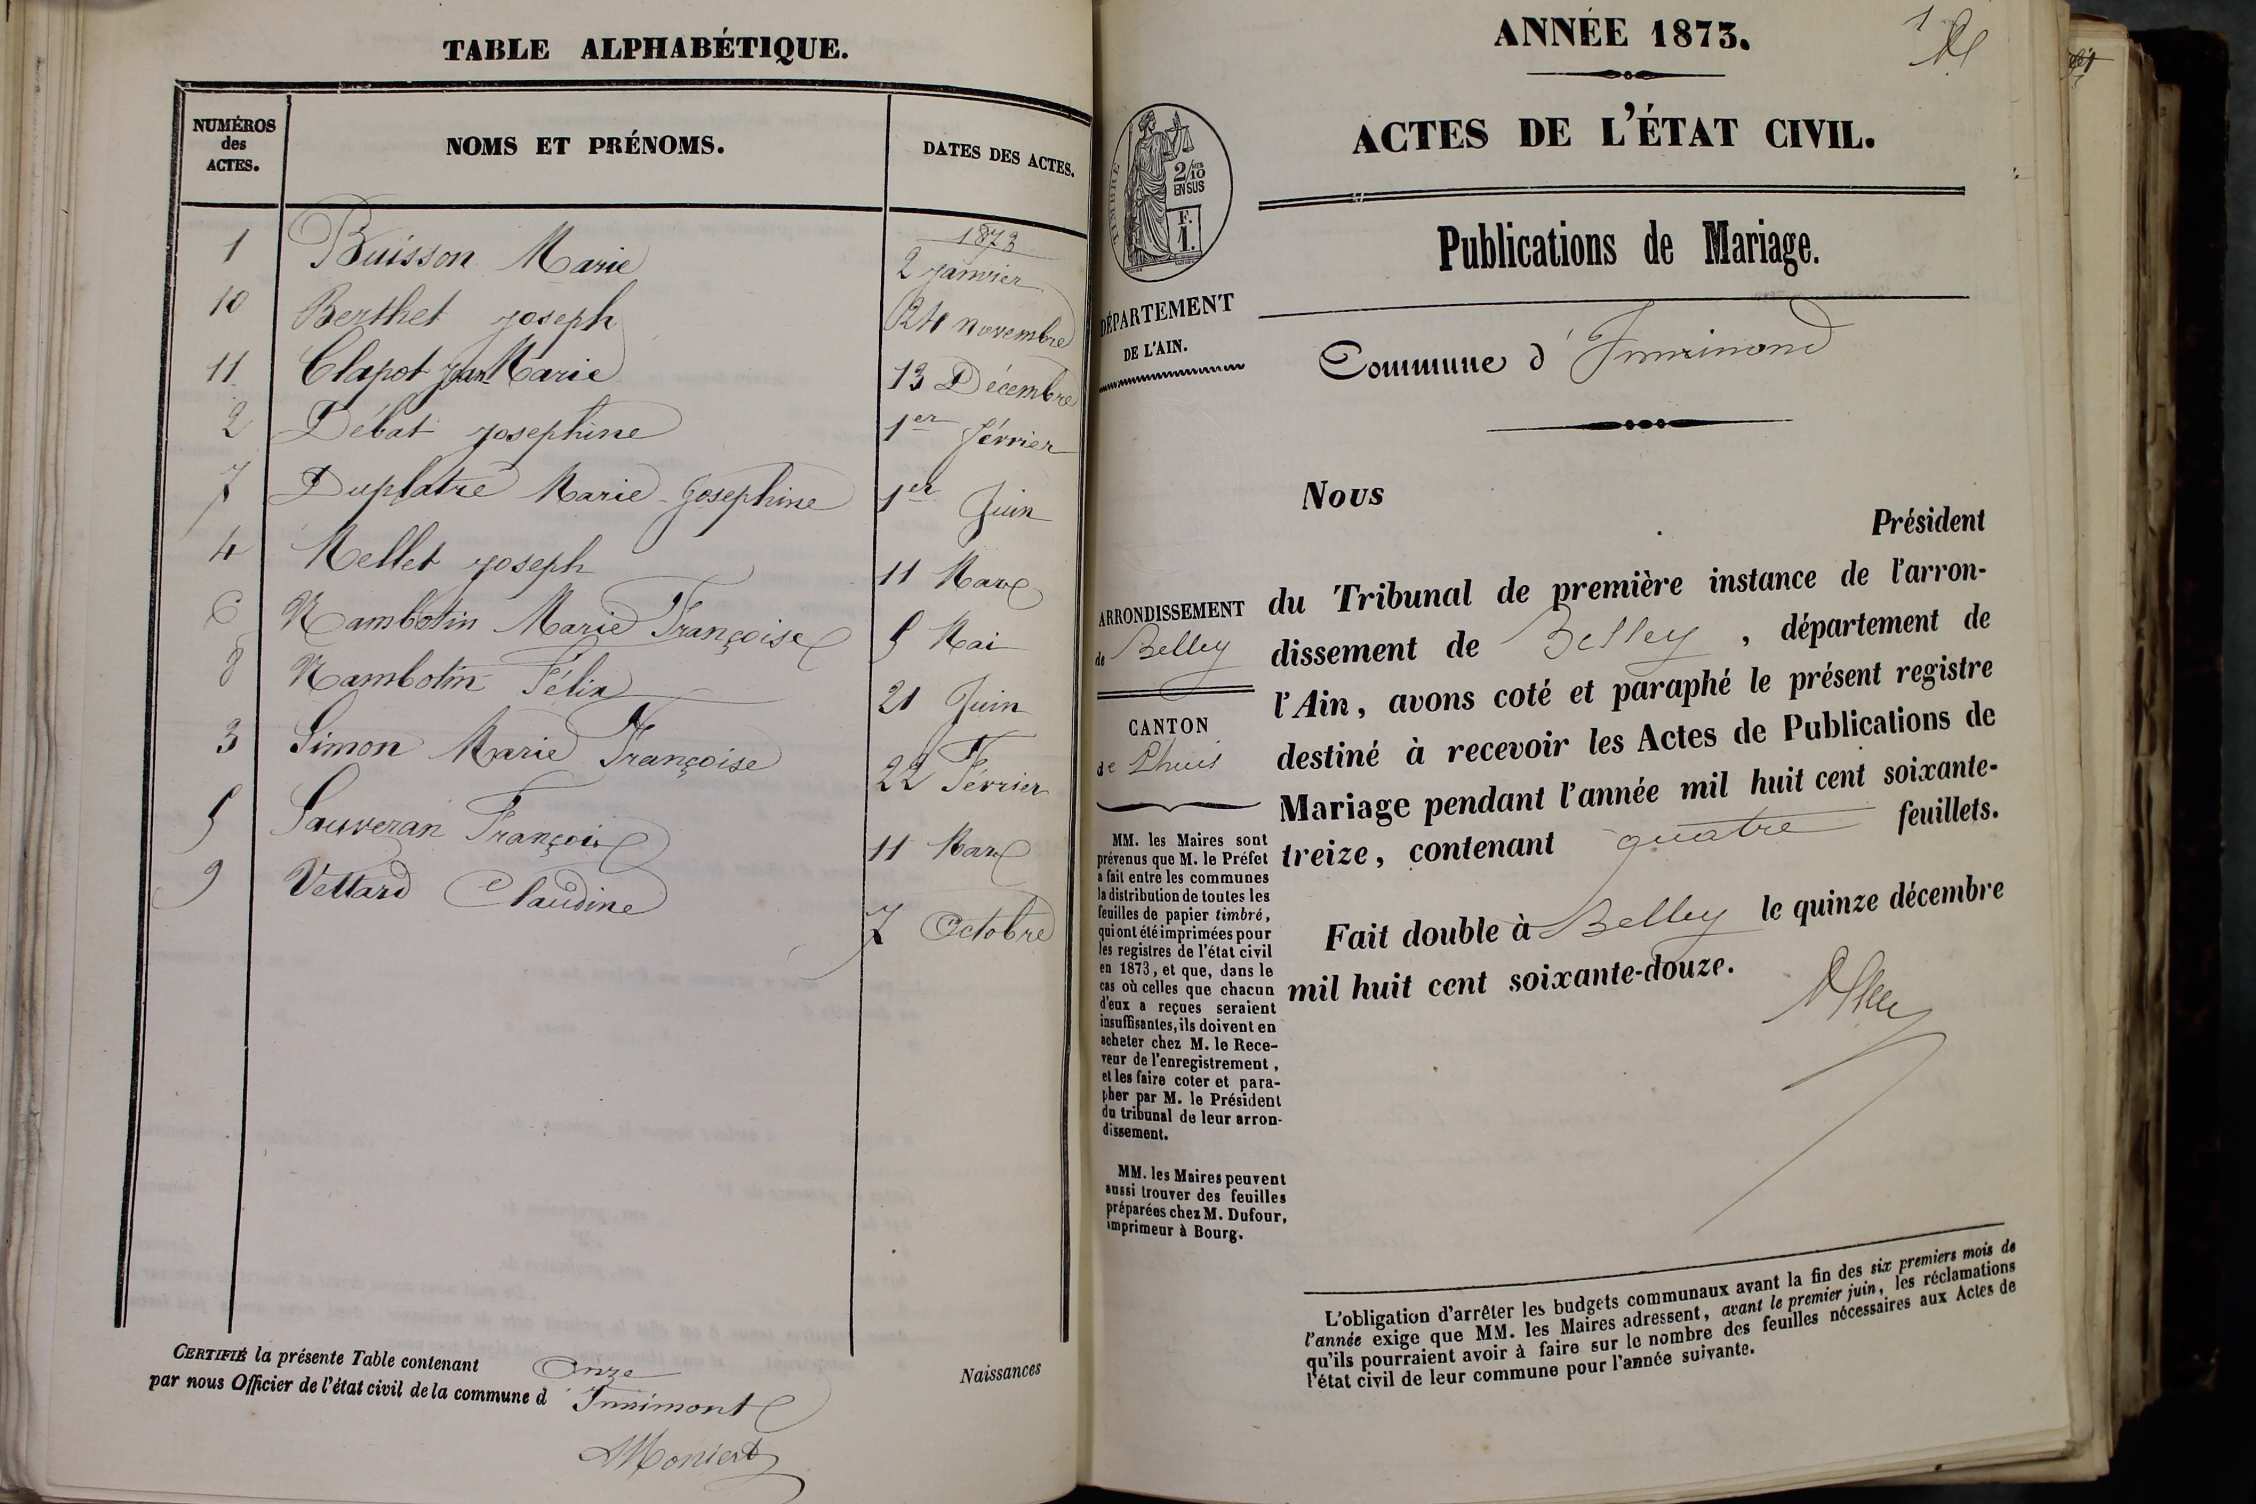 TABLE ALPHABÉTIQUE.
NUMÉROS des ACTES.
NOMS ET PRÉNOMS.
DATES DES ACTES.
1873
1 Buisson Marie 2 Janvier
10 Berthet Joseph 24 Novembre
11 Clapot Jean Marie 13 Décembre
2 Débat Josephine 1er Février
7 Duplatre Marie-Josephine 1er Juin
4 Mellet Joseph 11 Mars
6 Rambotin Marie Françoise 5 Mai
8 Rambotin Félix 21 Juin
3 Simon Marie Françoise 22 Février
5 Sauveran François 11 Mars
9 Vettard Claudine 7 Octobre
CERTIFIÉ la présente Table contenant Onze Naissances
par nous Officier de l'état civil de la commune d'Innimont
Moniert
1
ANNÉE 1873.
ACTES DE L'ÉTAT CIVIL.
TIMBRE
2/10
EN SUS
F.
1.
Publications de Mariage.
DÉPARTEMENT
DE L'AIN.
Commune d'Innimond
Nous
Président
du Tribunal de première instance de l'arron-
dissement de Belley, département de
l'Ain, avons coté et paraphé le présent registre
destiné à recevoir les Actes de Publications de
Mariage pendant l'année mil huit cent soixante-
treize, contenant quatre feuillets.
Fait double à Belley le quinze décembre
mil huit cent soixante-douze.
ARRONDISSEMENT
de Belley
CANTON
de Lhuis
MM. les Maires sont
prévenus que M. le Préfet
a fait entre les communes
la distribution de toutes les
feuilles de papier timbré,
qui ont été imprimées pour
les registres de l'état civil
en 1873, et que, dans le
cas où celles que chacun
d'eux a reçues seraient
insuffisantes, ils doivent en
acheter chez M. le Rece-
veur de l'enregistrement,
et les faire coter et para-
pher par M. le Président
du tribunal de leur arron-
dissement.
MM. les Maires peuvent
aussi trouver des feuilles
préparées chez M. Dufour,
imprimeur à Bourg.
L'obligation d'arrêter les budgets communaux avant la fin des six premiers mois de
l'année exige que MM. les Maires adressent, avant le premier juin, les réclamations
qu'ils pourraient avoir à faire sur le nombre des feuilles nécessaires aux Actes de
l'état civil de leur commune pour l'année suivante.